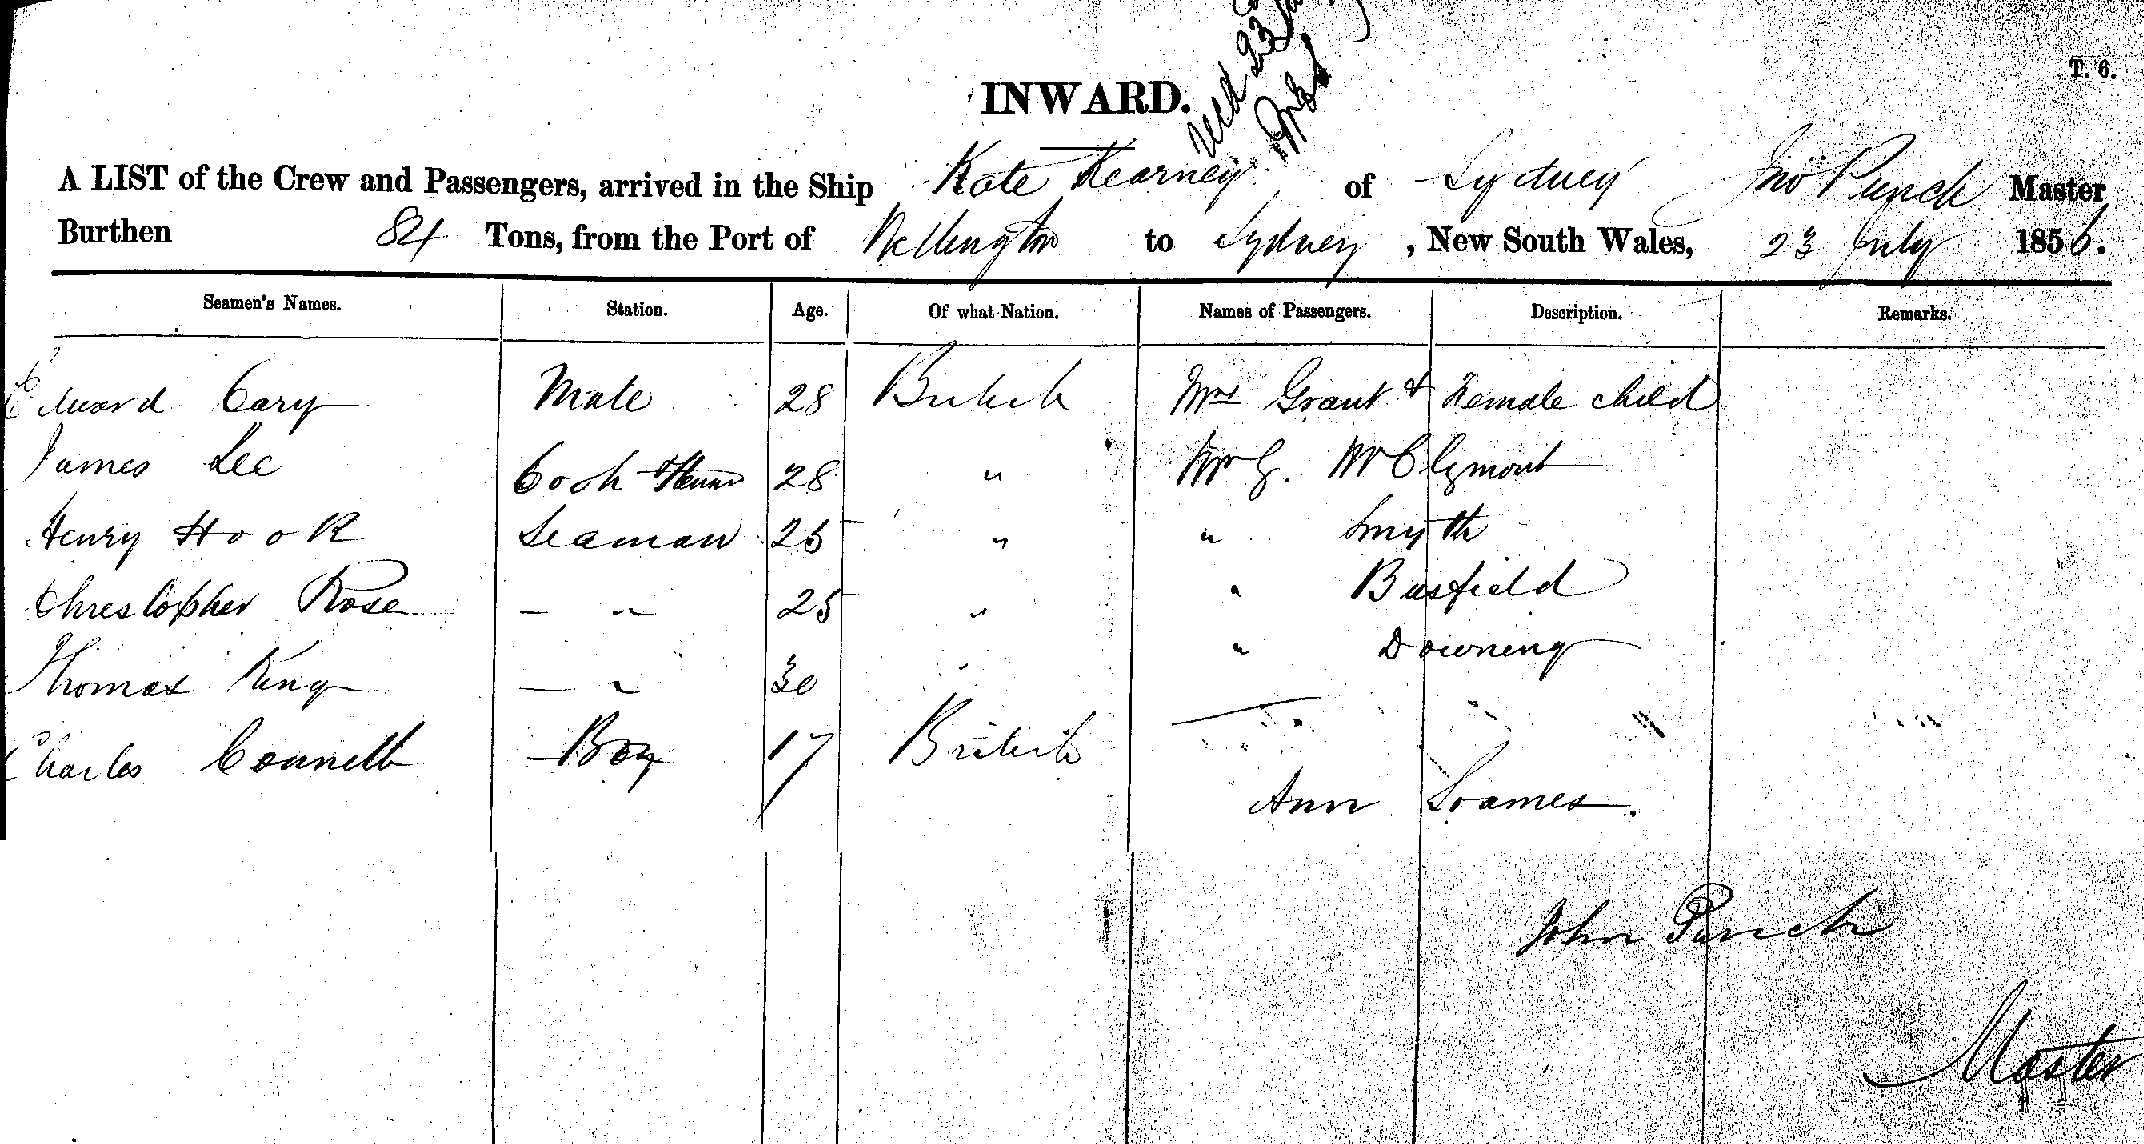 T. 6.
INWARD.
A LIST of the Crew and Passengers, arrived in the Ship Kate Kearney of Sydney Jno Punch Master
Burthen 84 Tons, from the Port of Wellington to Sydney, New South Wales, 23 July 1856.
Seamen's Names. Station. Age. Of what Nation. Names of Passengers. Description. Remarks.
Edward Cary Mate 28 British Mrs Grant & Female child
James Lee Cook & 28 " Mr G. McClymont
Henry Hook Seaman 25 " " Smyth
Christopher Rose — " 25 " " Busfield
Thomas King — " 30 " " Downing
Charles Connell Boy 17 British
Ann Soames.
John Punch
Master